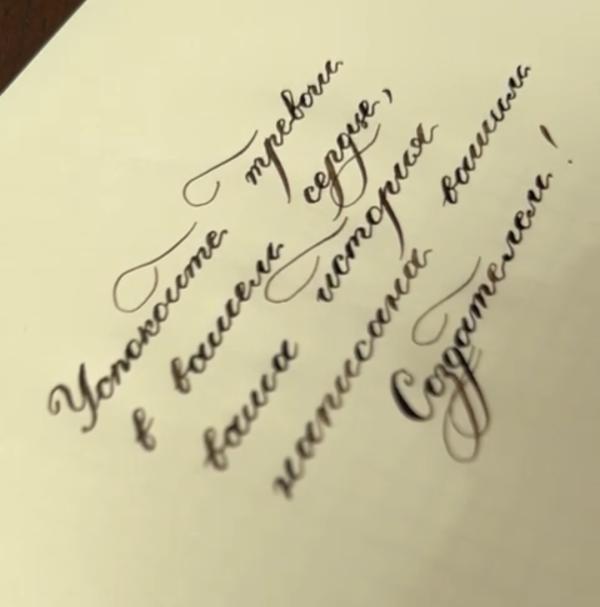 Успокоите тревоги
в вашем сердце,
ваша история
написана вашим
Создателем!